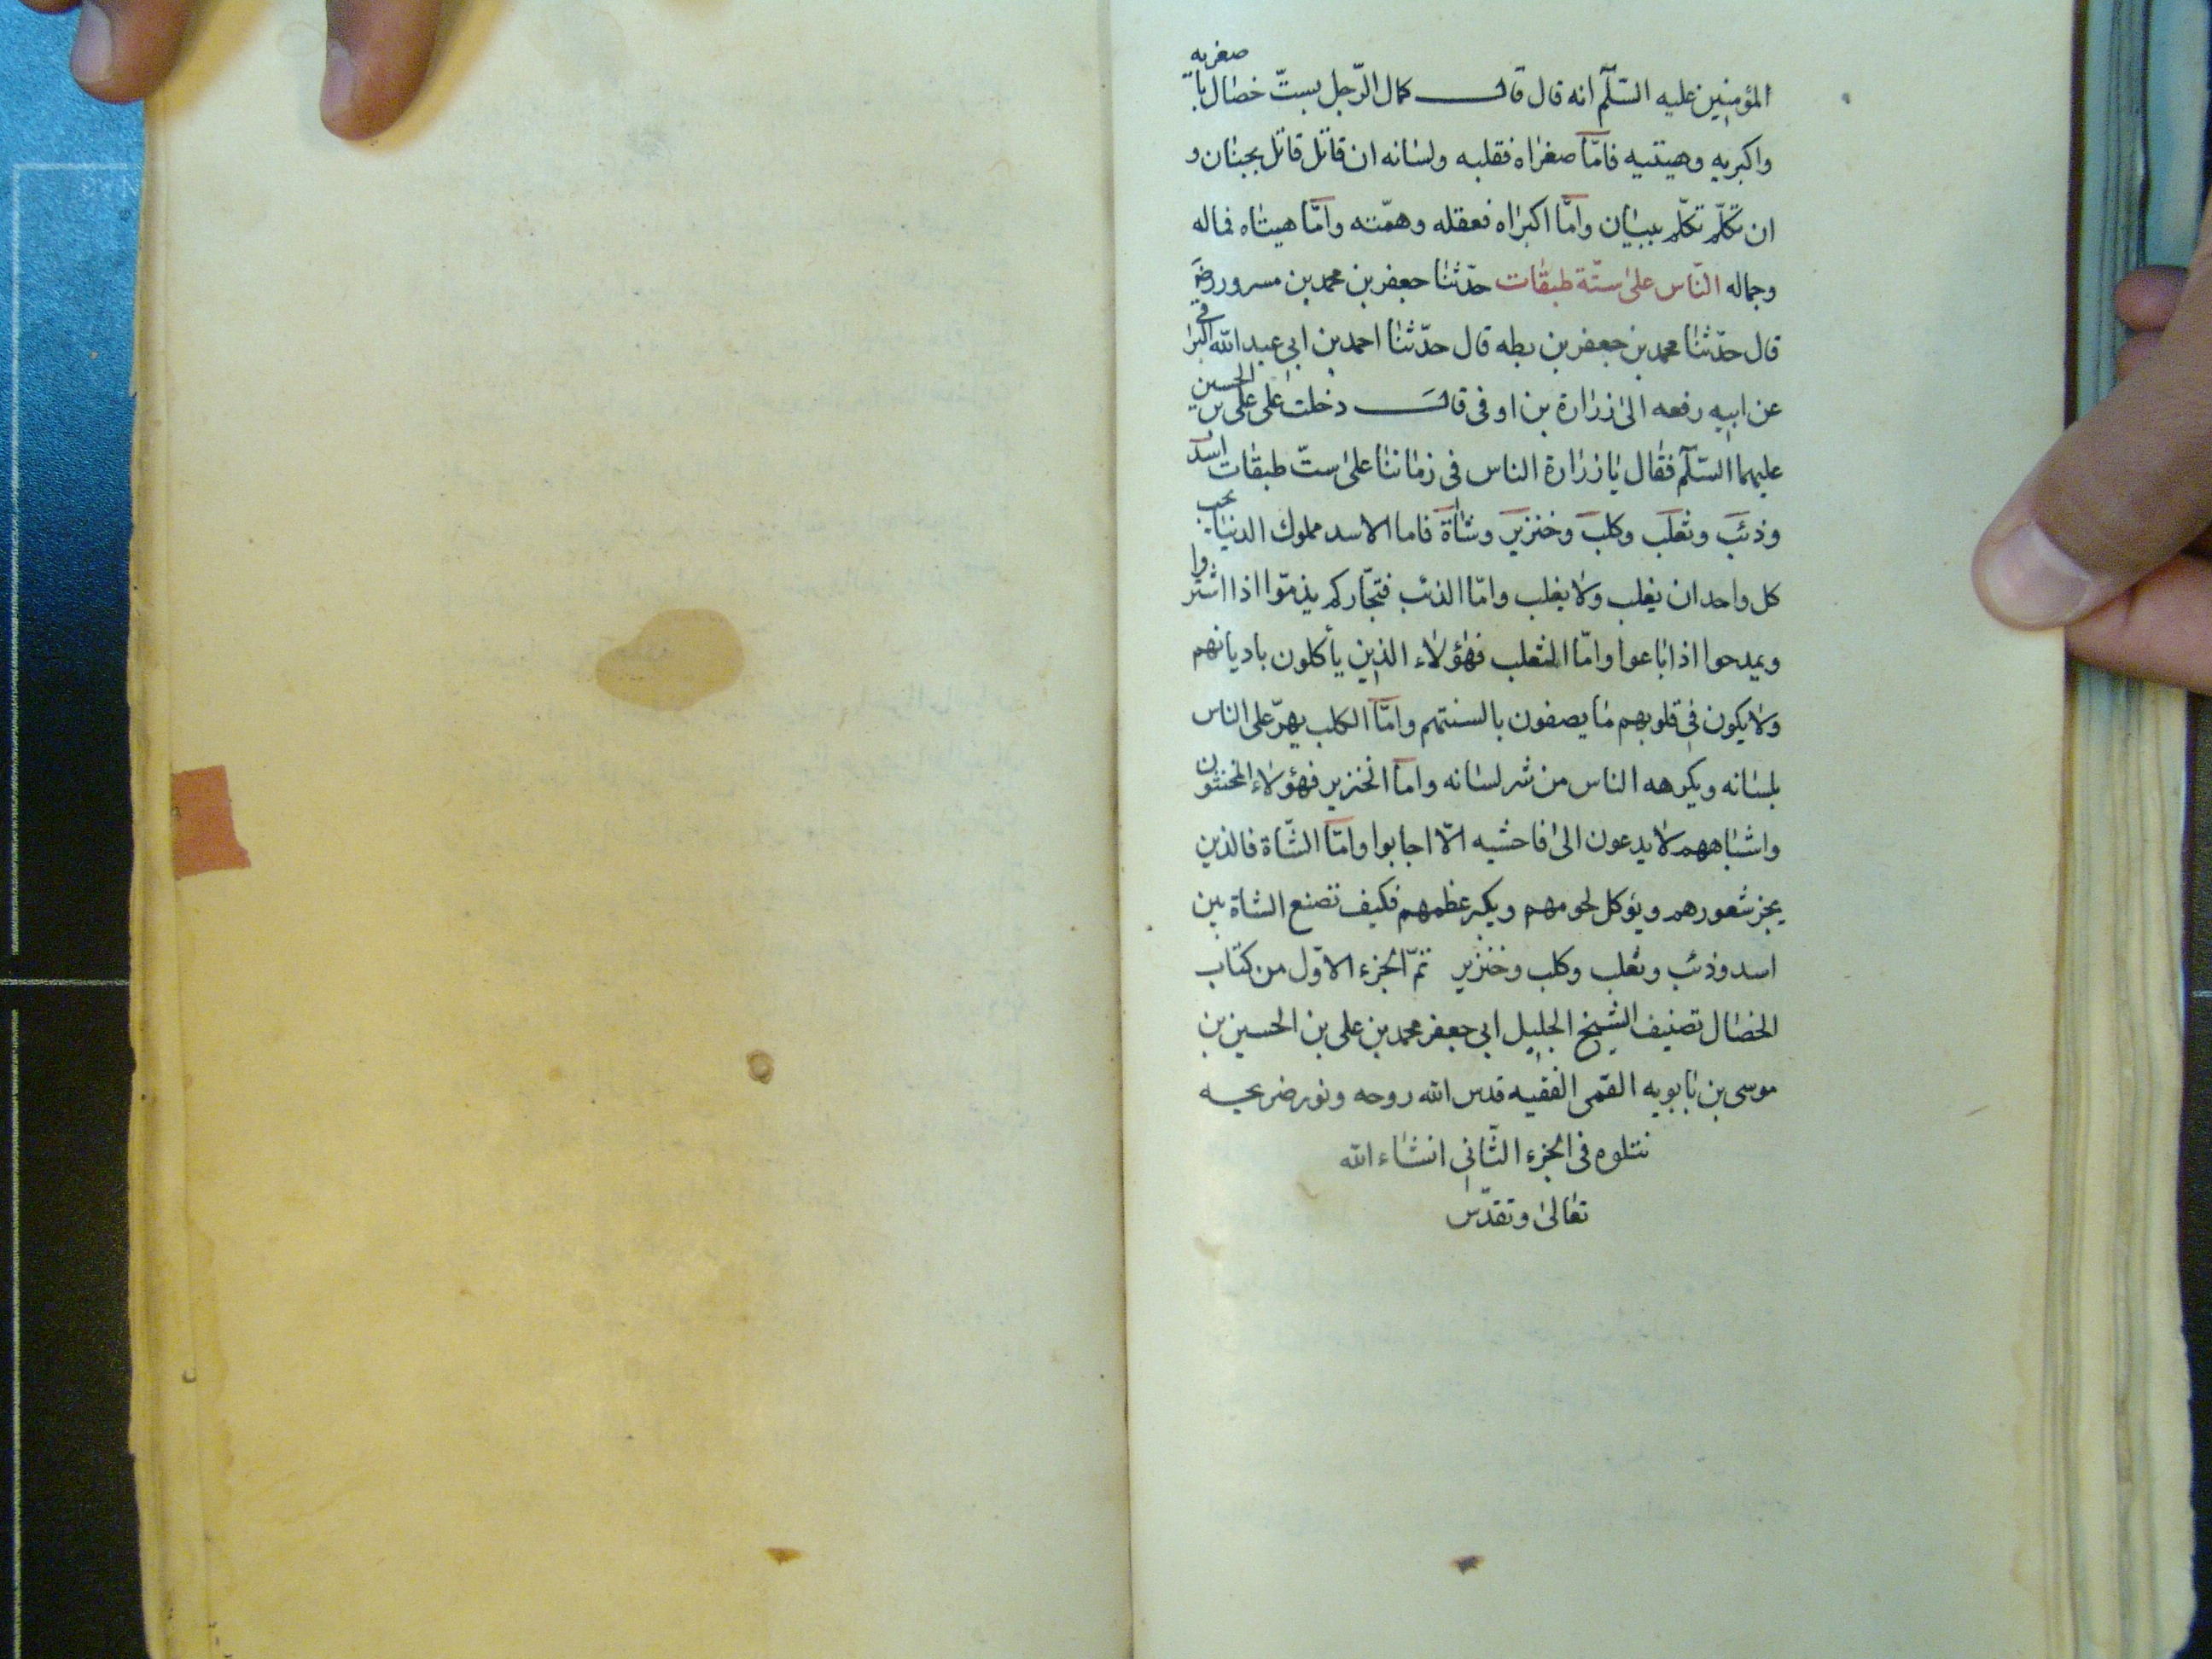 المؤمنين عليه السّلم انه قال قال كمال الرّجل بستّ خصال باصغريه
واكبريه وهيئتيه فامّا صغراه فقلبه ولسانه ان قاتل قاتل بجنان و
ان تكلّم تكلّم ببيان وامّا اكبراه فعقله وهمّته وامّا هيئتاه فماله
وجماله النّاس على ستّة طبقات حدّثنا جعفر بن محمد بن مسرور رضى
قال حدّثنا محمد بن جعفر بن بطه قال حدّثنا احمد بن ابي عبد الله البرقى
عن ابيه رفعه الى زرارة بن اوفى قال دخلت على على بن الحسين
عليهما السّلم فقال يا زرارة الناس فى زماننا على ستّ طبقات اسد
وذئب وثعلب وكلب وخنزير وشاة فاما الاسد مملوك الدنيا يحب
كل واحد ان يغلب ولا يغلب وامّا الذئب فتجّاركم يذمّوا اذا اشتروا
ويمدحوا اذا باعوا وامّا الثعلب فهؤلاء الذين يأكلون باديانهم
ولا يكون فى قلوبهم ما يصفون بالسنتهم وامّا الكلب يهرّ على الناس
بلسانه ويكرهه الناس من شر لسانه واما الخنزير فهؤلاء المخنثون
واشباههم لا يدعون الى فاحشيه الّا اجابوا وامّا الشّاة فالذين
يجز شعورهم ويؤكل لحومهم ويكسر عظمهم فكيف تصنع الشاة بين
اسد وذئب وثعلب وكلب وخنزير تمّ الجزء الاوّل من كتاب
الخصال تصنيف الشيخ الجليل ابي جعفر محمد بن على بن الحسين بن
موسى بن بابويه القمّى الفقيه قدس الله روحه ونور ضريحه
نتلوه فى الجزء الثّانى انشاء الله
تعالى وتقدّس